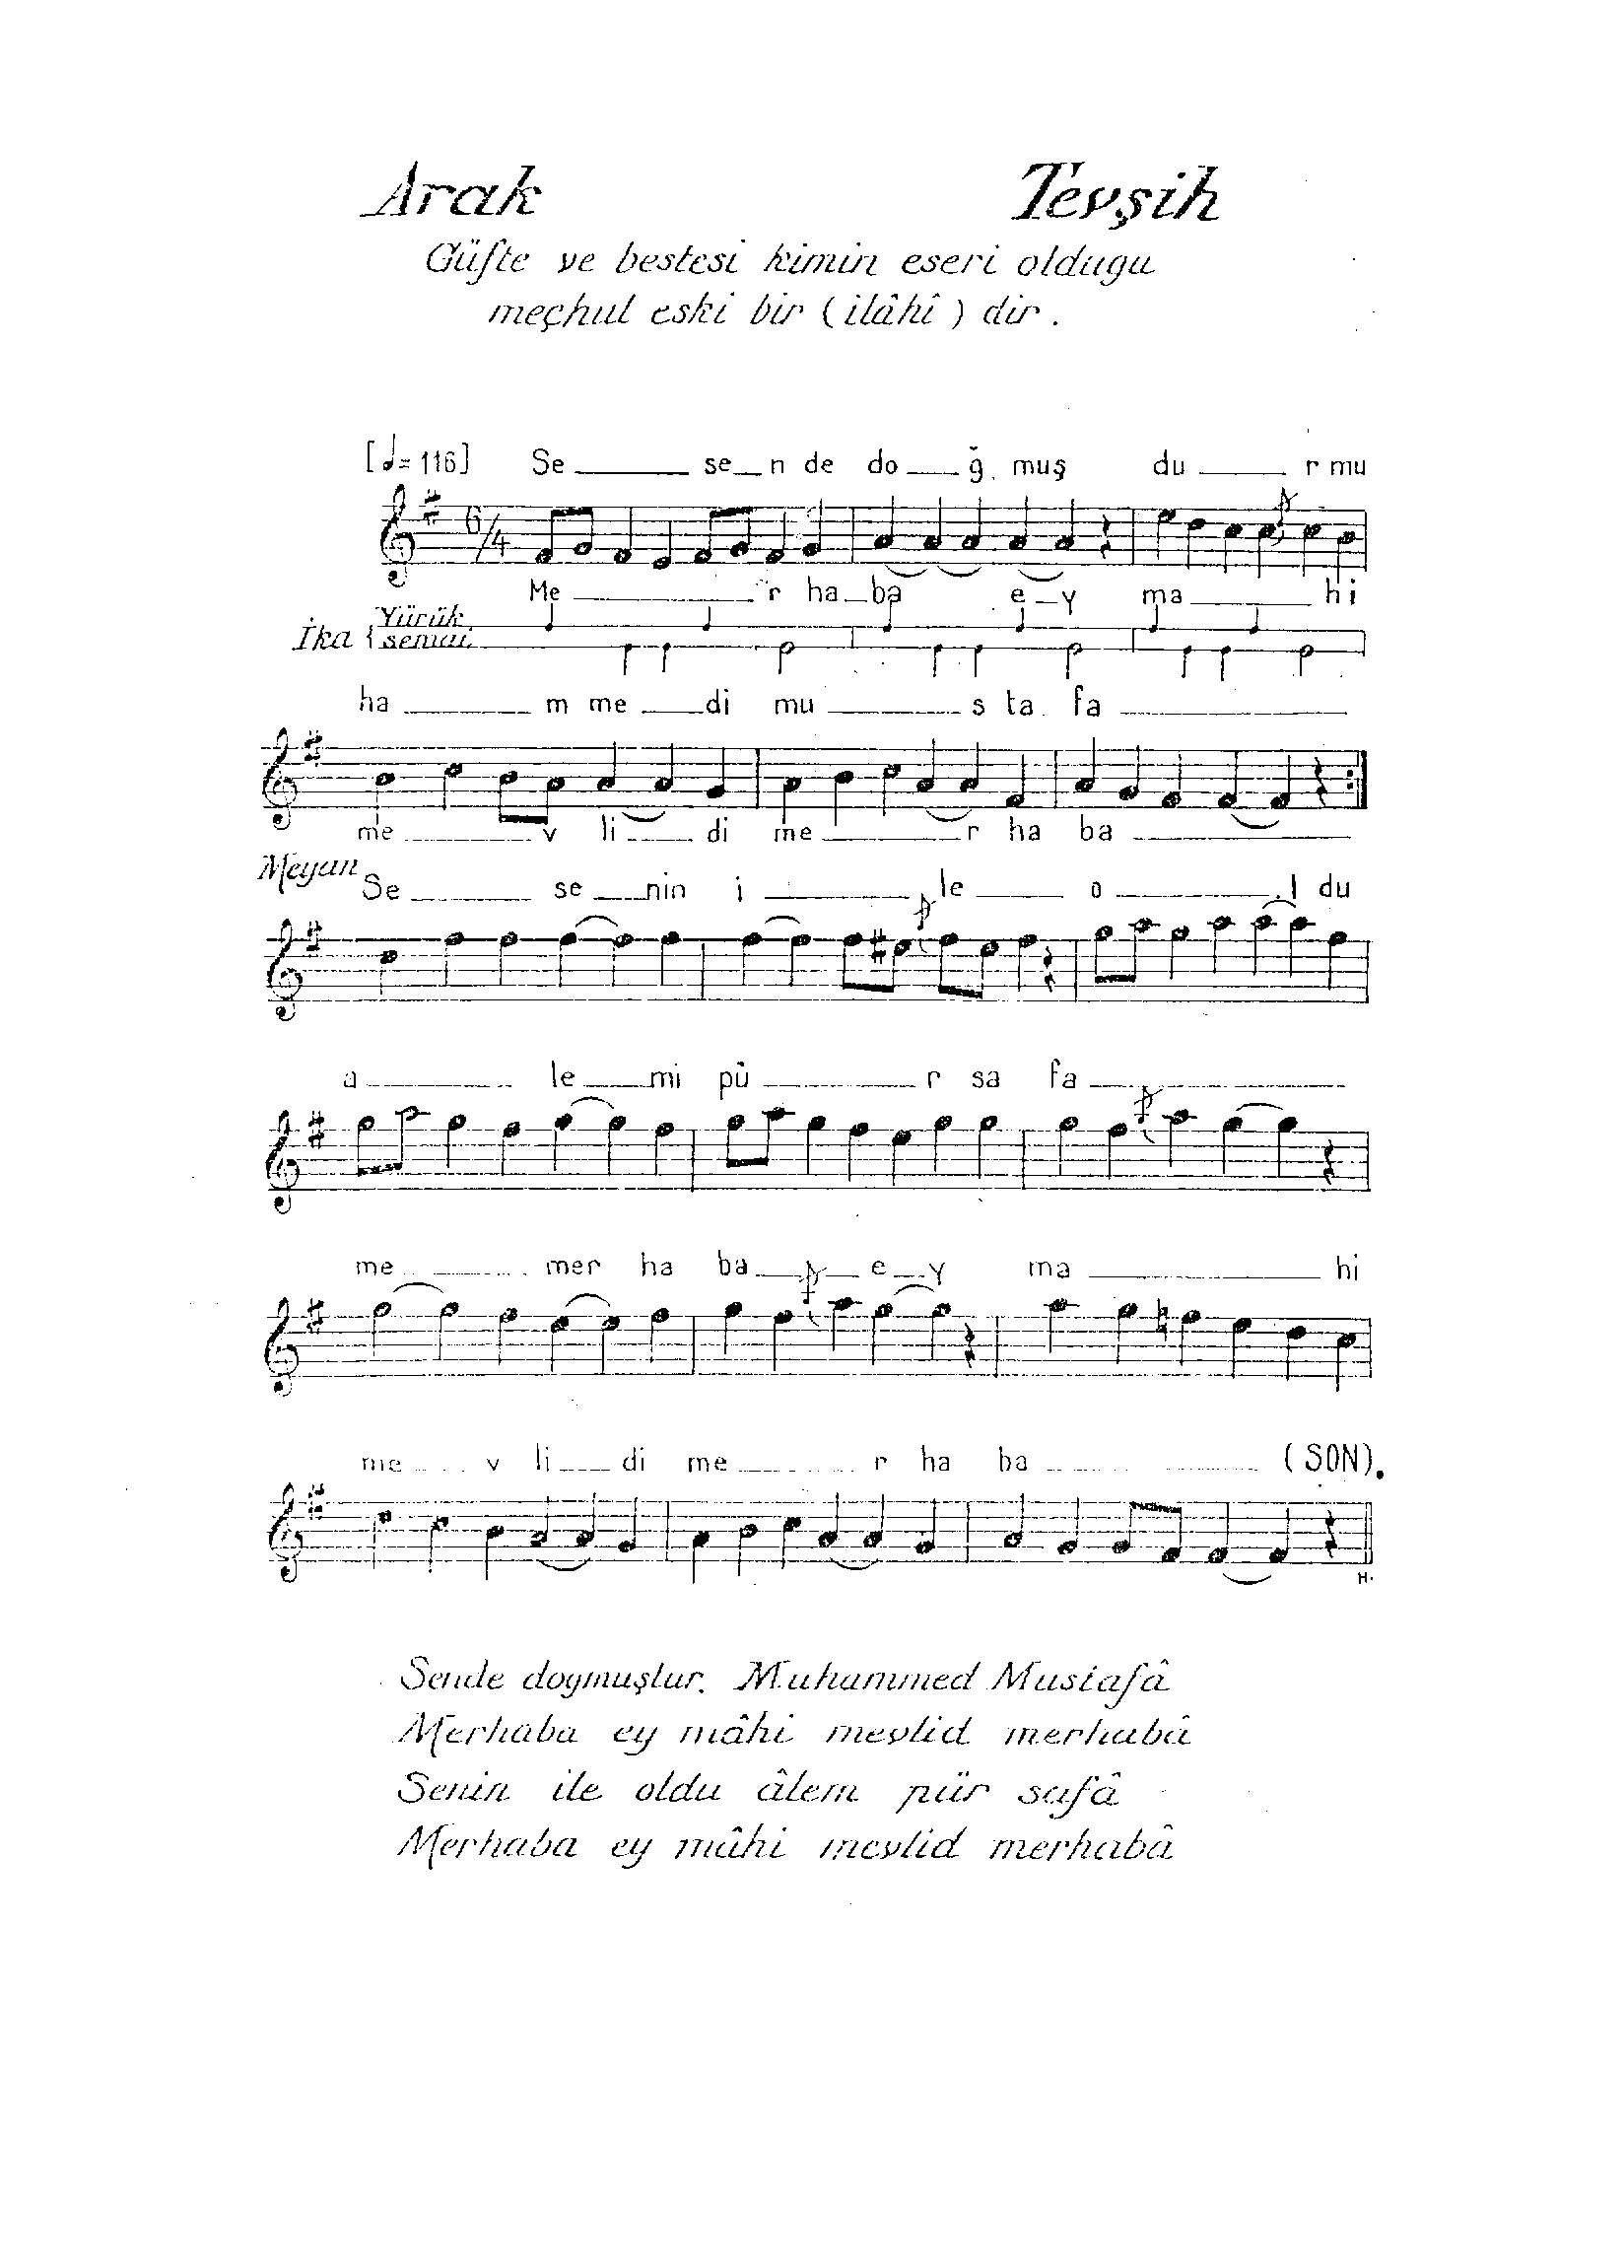 Arak Tevşih
Güfte ve bestesi kimin eseri olduğu
meçhul eski bir (ilâhî) dir.
[𝅗𝅥= 116] Se se n de do ğ muş du r mu
6/4
Me r ha ba e y ma hi
İka { Yürük
semai
ha m me di mu s ta fa
me v li di me r ha ba
Meyan
Se se nin i le o l du
a le mi pü r sa fa
me mer ha ba e y ma hi
me v li di me r ha ba (SON).
H.
Sende doğmuştur. Muhammed Mustafâ
Merhaba ey mâhi mevlid merhabâ
Senin ile oldu âlem pür safâ
Merhaba ey mâhi mevlid merhabâ